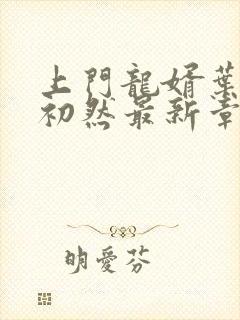 上門龍婿葉
初然最新章
明愛芬